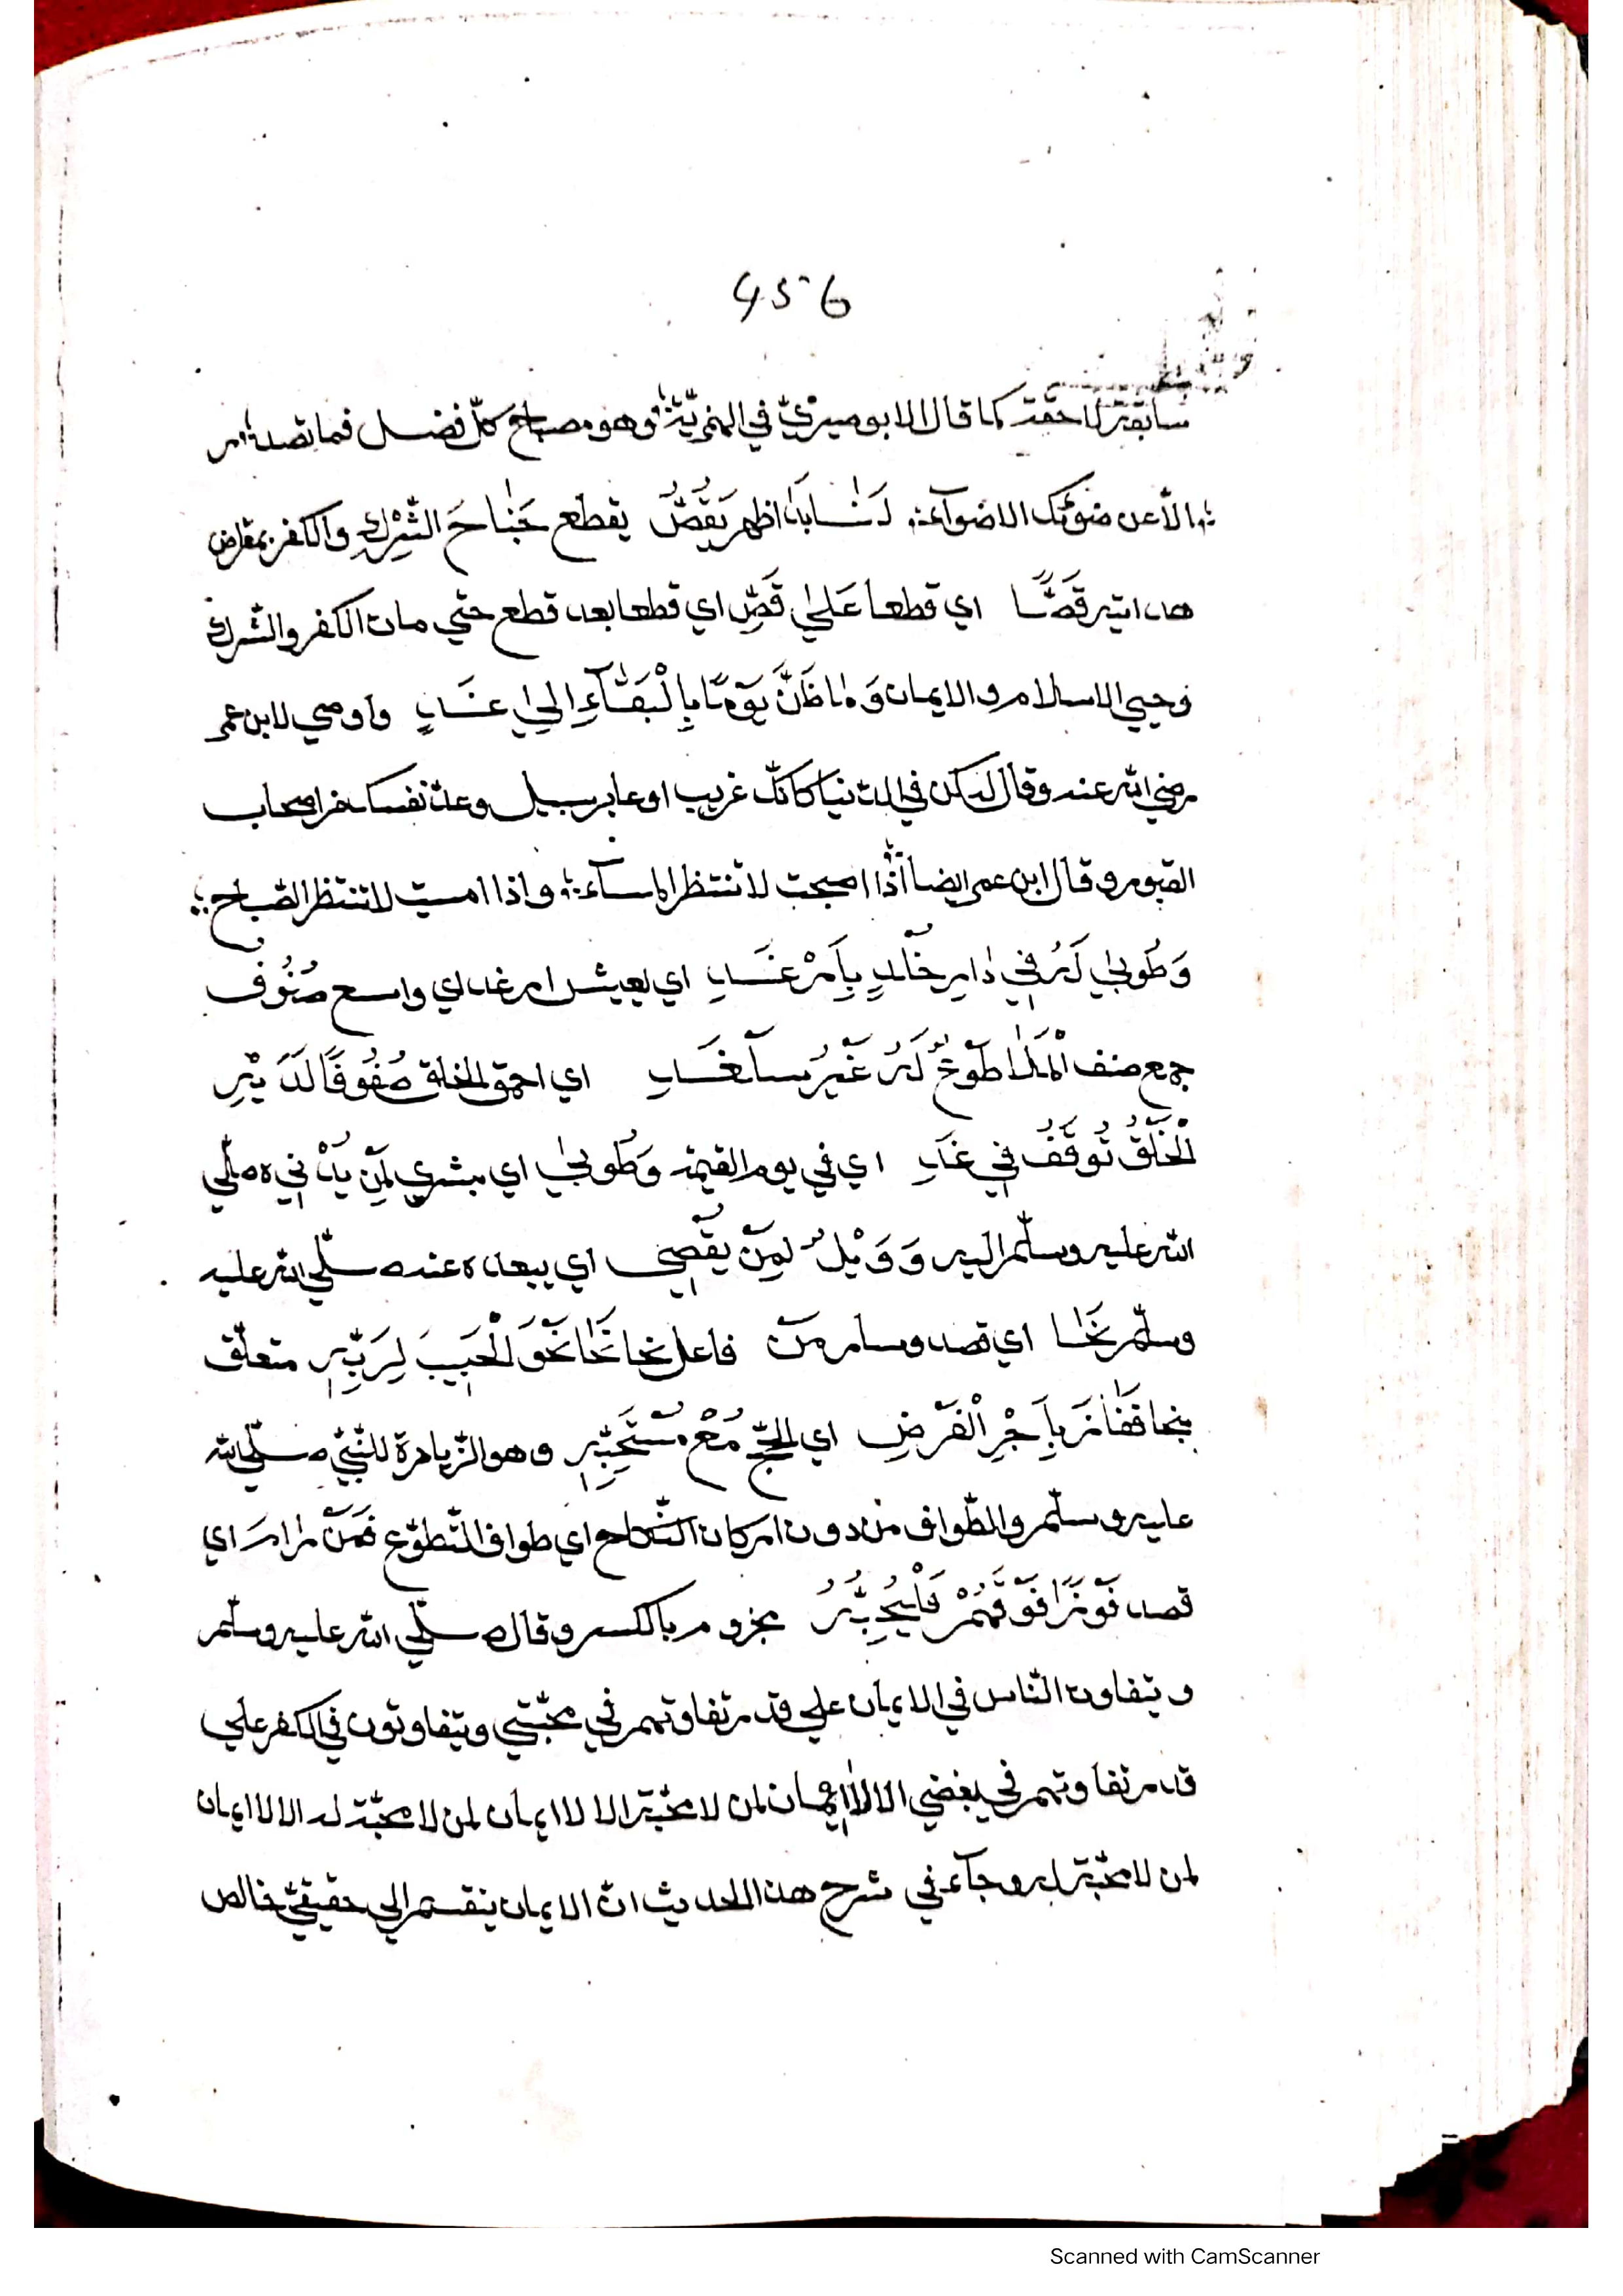 456
سابقة لاحقة كما قال الابوميريّ في الهمزيّة؛ وهو مصباح كلّ فضل فما تصد؛ ر
؛ الّا عن ضوئك الاضوآء؛ لَنَا بَدَا اظهر يَقُصُّ يقطع جَنَاحَ الشِّرْكِ والكفر بمقراض
هدايته قَصًّا اي قطعا عَلىٰ قَصٍّ اي قطعا بعد قطع حتي مات الكفر والشرك
وحيي الاسلام والايمان وَمَا ظَنَّ يَوْمًا بِالْبَقَآءِ اِلىٰ غَدٍ واوصي لابن عمر
رضي الله عنه وقال له كن في الدّنيا كانّك غريب او عابر سبيل وعدّ نفسك من اصحاب
القبور وقال ابن عمر ايضا؛ اذا اصبحت لا تنتظر المسآء؛ واذا امسيت لا تنتظر الصّباح؛
وَطُوبىٰ لَهُ فِي دَارِ خُلْدٍ بِاَرْغَدِ اي بعيش ارغد اي واسع صُنُوف
جمع صنف الْمَلَا طَوْعٌ لَهُ غَيْرُ اي احمق الخلق صُفُوفًا لَدَيْهِ
الْخَلْقُ تُوقَفُ فِي غَدِ اي في يوم القيمة وَطُوبىٰ اي بشري لِمَنْ يُدْنِي ه صلّي
الله عليه وسلّم اليه وَوَيْلٌ لِمَنْ يُقْصِي اي يبعده عنه صلّي الله عليه
وسلّم نَحَا اي قصد وسار مَنْ فاعل نحا نَحَا نَحْوَ الْحَبِيبَ لِرَبِّهِ متعلّق
بنحا فَفَازَ بِاَجْرِ الْفَرْضِ اي الحجّ مَعْ مُسْتَحَبِّهِ وهو الزّيارة للنّبيّ صلّي الله
عليه وسلّم والطّواف من دون اركان اي طواف التّطوّع فَمَنْ رَامَ اي
قصد فَوْزًا فَوْقَهُمْ فَلْيُحِبُّهُ مجزوم بالكسر وقال صلّي الله عليه وسلّم
ويتفاوت النّاس في الايمان علي قدر تفاوتهم في محبّتي ويتفاوتون في الكفر علي
قدر تفاوتهم في بغضي الا لا ايمان لمن لا محبّة الا لا ايمان لمن لا محبّة له الا لا ايمان
لمن لا محبّة له وجآء في شرح هذا الحديث انّ الايمان ينقسم الي حقيقيّ خالص
Scanned with CamScanner